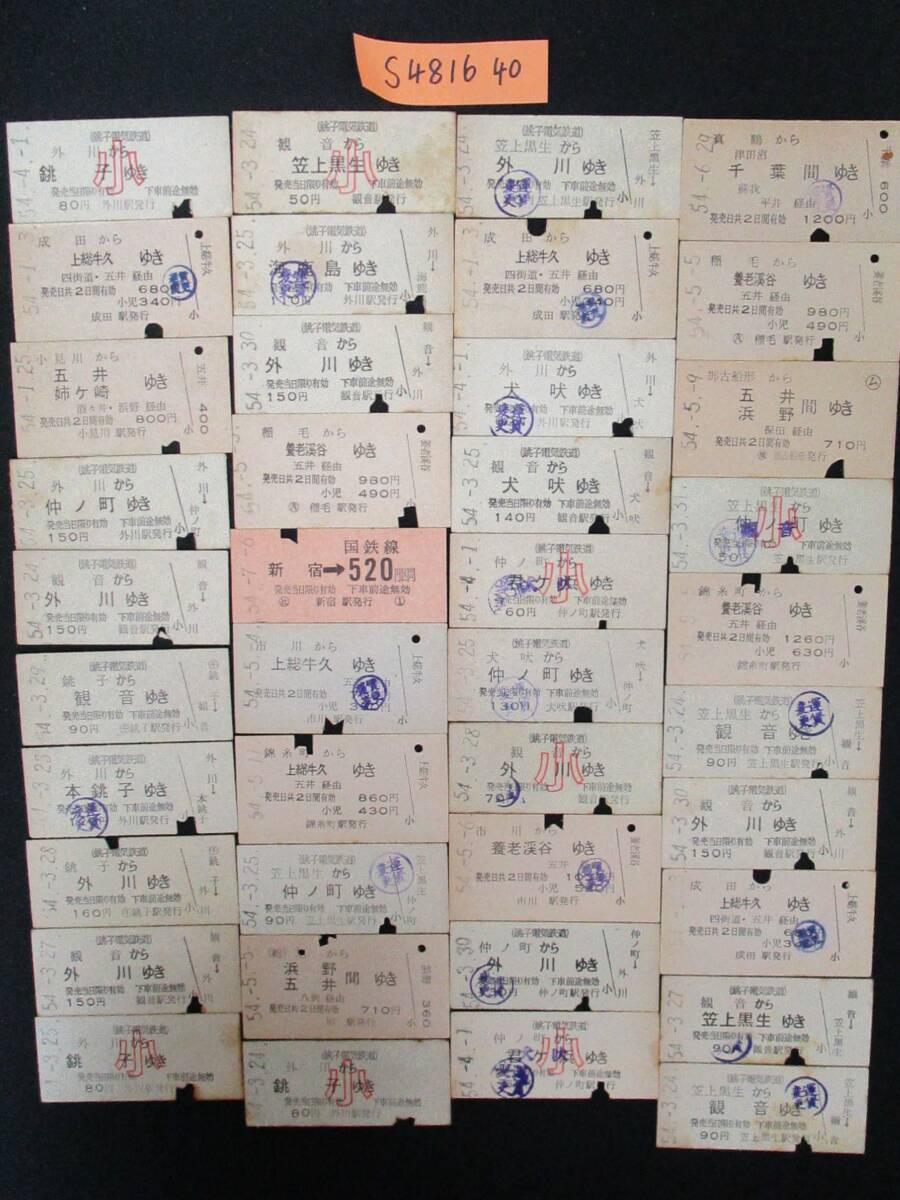 S4816 40
54.-4.-1
(銚子電気鉄道)
外川から
銚子ゆき
小
発売当日限り有効 下車前途無効
80円 外川駅発行
54.-1.-3
成田から
上総牛久 ゆき
四街道・五井 経由
発売日共2日間有効 680円
小児340円
成田 駅発行
上総牛久
小
54.-1.25
小見川 から
五井
姉ケ崎 ゆき
発売日共2日間有効 800円
小見川 駅発行
五井
400
(銚子電気鉄道)
外川から
仲ノ町 ゆき
発売当日限り有効 下車前途無効
150円 外川駅発行
外川→仲ノ町
小
54.-3.24
(銚子電気鉄道)
観音から
外川ゆき
発売当日限り有効 下車前途無効
150円 観音駅発行
観音→外川
小
54.-3.29
(銚子電気鉄道)
銚子から
観音ゆき
発売当日限り有効 下車前途無効
90円
小
(銚子電気鉄道)
外川から
本銚子ゆき
発売当日限り有効 下車前途無効
外川駅発行
外川→本銚子
小
54.-3.28
(銚子電気鉄道)
銚子から
外川ゆき
発売当日限り有効 下車前途無効
160円
小
54.-3.27
(銚子電気鉄道)
観音から
外川ゆき
発売当日限り有効 下車前途無効
150円 観音駅発行
小
(銚子電気鉄道)
銚子ゆき
小
発売当日限り有効 下車前途無効
80円
54.-3.24
(銚子電気鉄道)
観音から
笠上黒生ゆき
小
発売当日限り有効 下車前途無効
50円 観音駅発行
54.-3.25
(銚子電気鉄道)
外川から
海鹿島ゆき
発売当日限り有効 下車前途無効
外川駅発行
小
54.-3.30
(銚子電気鉄道)
観音から
外川ゆき
発売当日限り有効 下車前途無効
150円 観音駅発行
観音→外川
小
稲毛から
養老渓谷 ゆき
五井 経由
発売日共2日間有効 980円
小児 490円
稲毛 駅発行
養老渓谷
小
国鉄線
新宿→520円区間
発売当日限り有効 下車前途無効
新宿 駅発行 ①
54.-5.-4
市川から
上総牛久 ゆき
発売日共2日間有効
市川 駅発行
上総牛久
小
錦糸町から
上総牛久 ゆき
五井 経由
発売日共2日間有効 860円
小児 430円
錦糸町駅発行
上総牛久
小
54.-3.25
(銚子電気鉄道)
笠上黒生から
仲ノ町ゆき
発売当日限り有効 下車前途無効
90円 笠上黒生駅発行
54.-5.-5
から
浜野
五井 間ゆき
発売日共2日間有効 710円
駅発行
浜野
360
(銚子電気鉄道)
から
銚子ゆき
小
発売当日限り有効 下車前途無効
80円 外川駅発行
54.-3.24
(銚子電気鉄道)
笠上黒生から
外川ゆき
発売当日限り有効 下車前途無効
笠上黒生駅発行
笠上黒生→外川
小
54.-1.-3
成田から
上総牛久 ゆき
四街道・五井 経由
発売日共2日間有効 680円
小児340円
成田 駅発行
上総牛久
小
54.-4.-1
(銚子電気鉄道)
外川から
犬吠ゆき
発売当日限り有効 下車前途無効
外川駅発行
外川→犬吠
小
54.-3.25
(銚子電気鉄道)
観音から
犬吠ゆき
発売当日限り有効 下車前途無効
140円 観音駅発行
観音→犬吠
小
54.-4.-1
(銚子電気鉄道)
仲ノ町から
小
発売当日限り有効 下車前途無効
60円 仲ノ町駅発行
(銚子電気鉄道)
犬吠から
仲ノ町ゆき
発売当日限り有効 下車前途無効
130円 犬吠駅発行
犬吠→仲ノ町
小
54.-3.28
(銚子電気鉄道)
観音から
外川ゆき
小
発売当日限り有効 下車前途無効
観音駅発行
54.-5.-6
市川から
養老渓谷 ゆき
五井 経由
発売日共2日間有効
小児
市川 駅発行
養老渓谷
小
54.-3.30
(銚子電気鉄道)
仲ノ町から
外川ゆき
発売当日限り有効 下車前途無効
仲ノ町駅発行
仲ノ町→外川
小
54.-4.-1
(銚子電気鉄道)
仲ノ町から
小
発売当日限り有効 下車前途無効
仲ノ町駅発行
54.-6.20
真鶴から
津田沼
千葉 間ゆき
蘇我
平井 経由
発売日共2日間有効 1200円
600
54.-5.-5
稲毛から
養老渓谷 ゆき
五井 経由
発売日共2日間有効 980円
小児 490円
稲毛 駅発行
養老渓谷
小
54.-5.-9
那古船形 から
五井
浜野 間ゆき
保田 経由
発売日共2日間有効 710円
54.-3.31
(銚子電気鉄道)
笠上黒生から
小
発売当日限り有効 下車前途無効
50円 笠上黒生駅発行
錦糸町から
養老渓谷 ゆき
五井 経由
発売日共2日間有効 1260円
小児 630円
錦糸町駅発行
養老渓谷
小
54.-3.24
(銚子電気鉄道)
笠上黒生から
観音ゆき
発売当日限り有効 下車前途無効
90円 笠上黒生駅発行
笠上黒生→観音
小
54.-3.30
(銚子電気鉄道)
観音から
外川ゆき
発売当日限り有効 下車前途無効
150円 観音駅発行
観音→外川
小
成田から
上総牛久 ゆき
四街道・五井 経由
発売日共2日間有効
小児
成田 駅発行
上総牛久
小
54.-3.27
(銚子電気鉄道)
観音から
笠上黒生ゆき
発売当日限り有効 下車前途無効
90円 観音駅発行
観音→笠上黒生
小
54.-3.24
(銚子電気鉄道)
笠上黒生から
観音ゆき
発売当日限り有効 下車前途無効
90円 笠上黒生駅発行
笠上黒生→観音
小